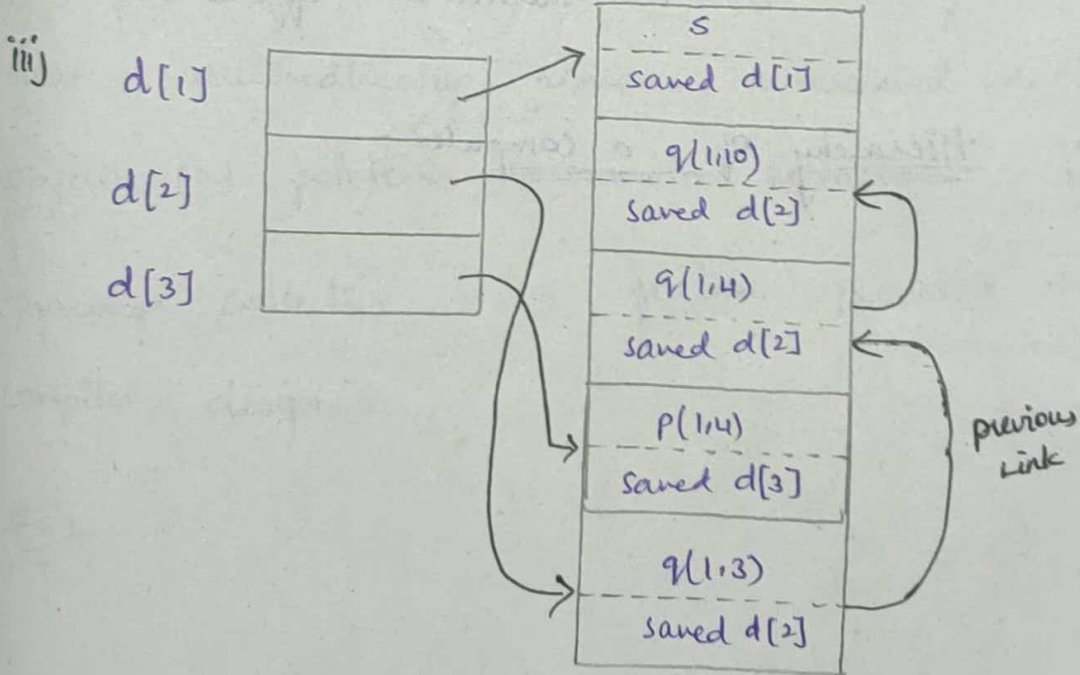 iii)
d[1]
d[2]
d[3]
s
saved d[1]
q(1,10)
saved d[2]
q(1,4)
saved d[2]
p(1,4)
saved d[3]
q(1,3)
saved d[2]
previous
Link